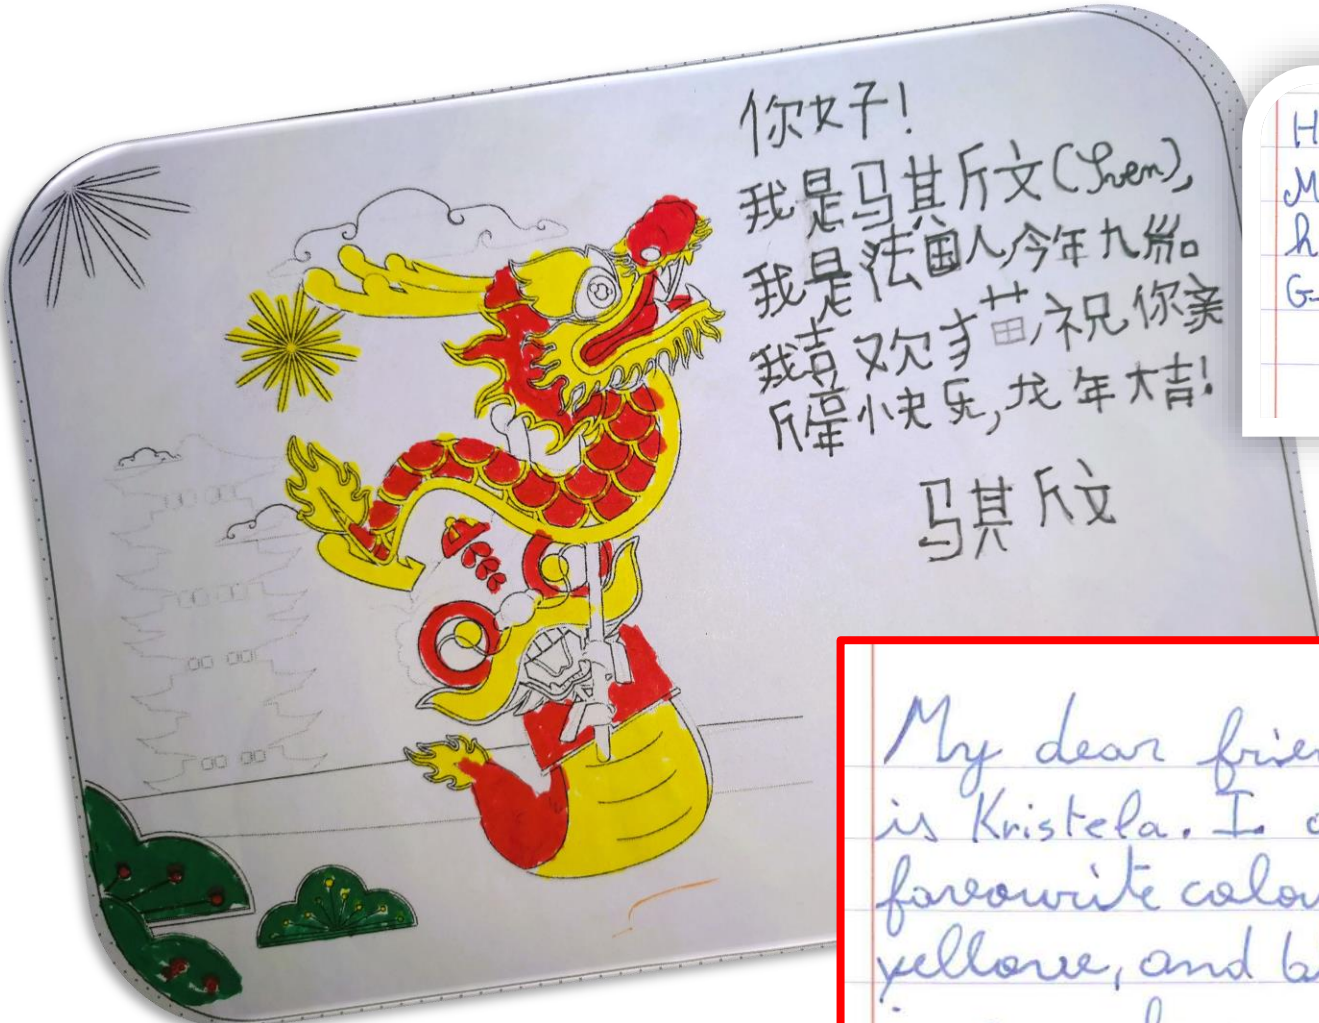 你好!
我是马斯文(Sven),
我是法国人,今年九岁。
我喜欢猫,祝你亲
斤年快乐,龙年大吉!
马斯文
My dear frien
is Kristela. I
favourite colou
yellowe, and b